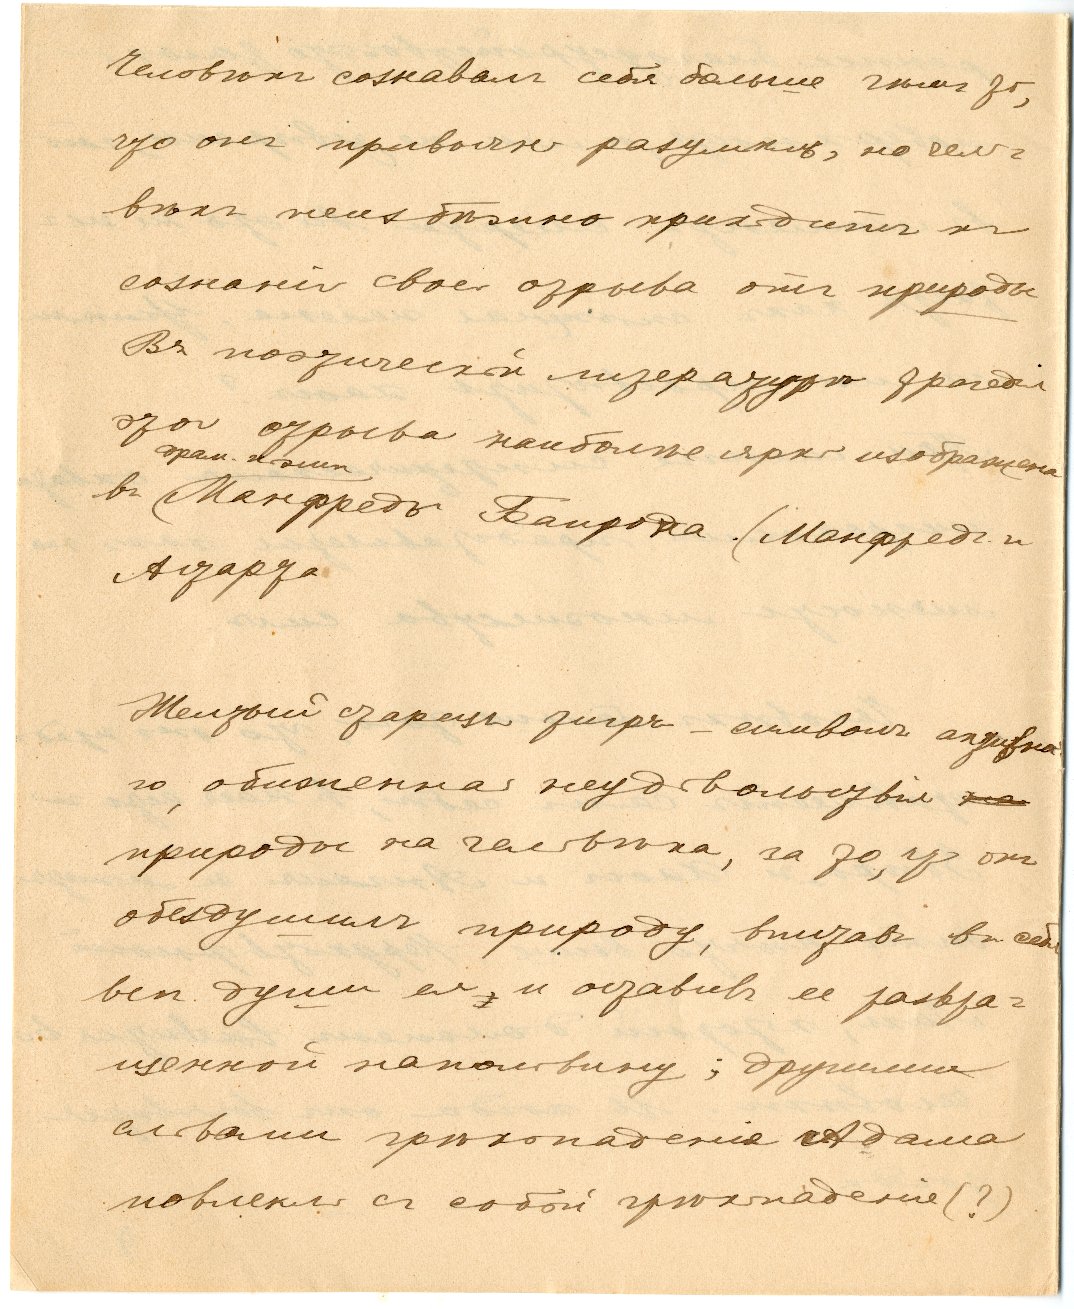 Человѣкъ сознавалъ себя больше чѣмъ то,
что онъ привычно разумѣлъ, но чело-
вѣкъ неизбѣжно приходитъ къ
сознанію своего отрыва отъ природы
Въ поэтической литературѣ трагедія
этого отрыва наиболѣе ярко изображена
въ (Манфредѣ Байрона. (Манфредъ и
Астарта
Желтый старецъ тигръ – символъ активна-
го, обиженнаго неудовольствія на
природы на человѣка, за то, что онъ
обездушилъ природу, впитавъ въ себя
всѣ души ея, и оставивъ ее развра-
щенной наполовину; другими
словами грѣхопаденіе Адама
повлекло съ собой грѣхопаденіе (?)